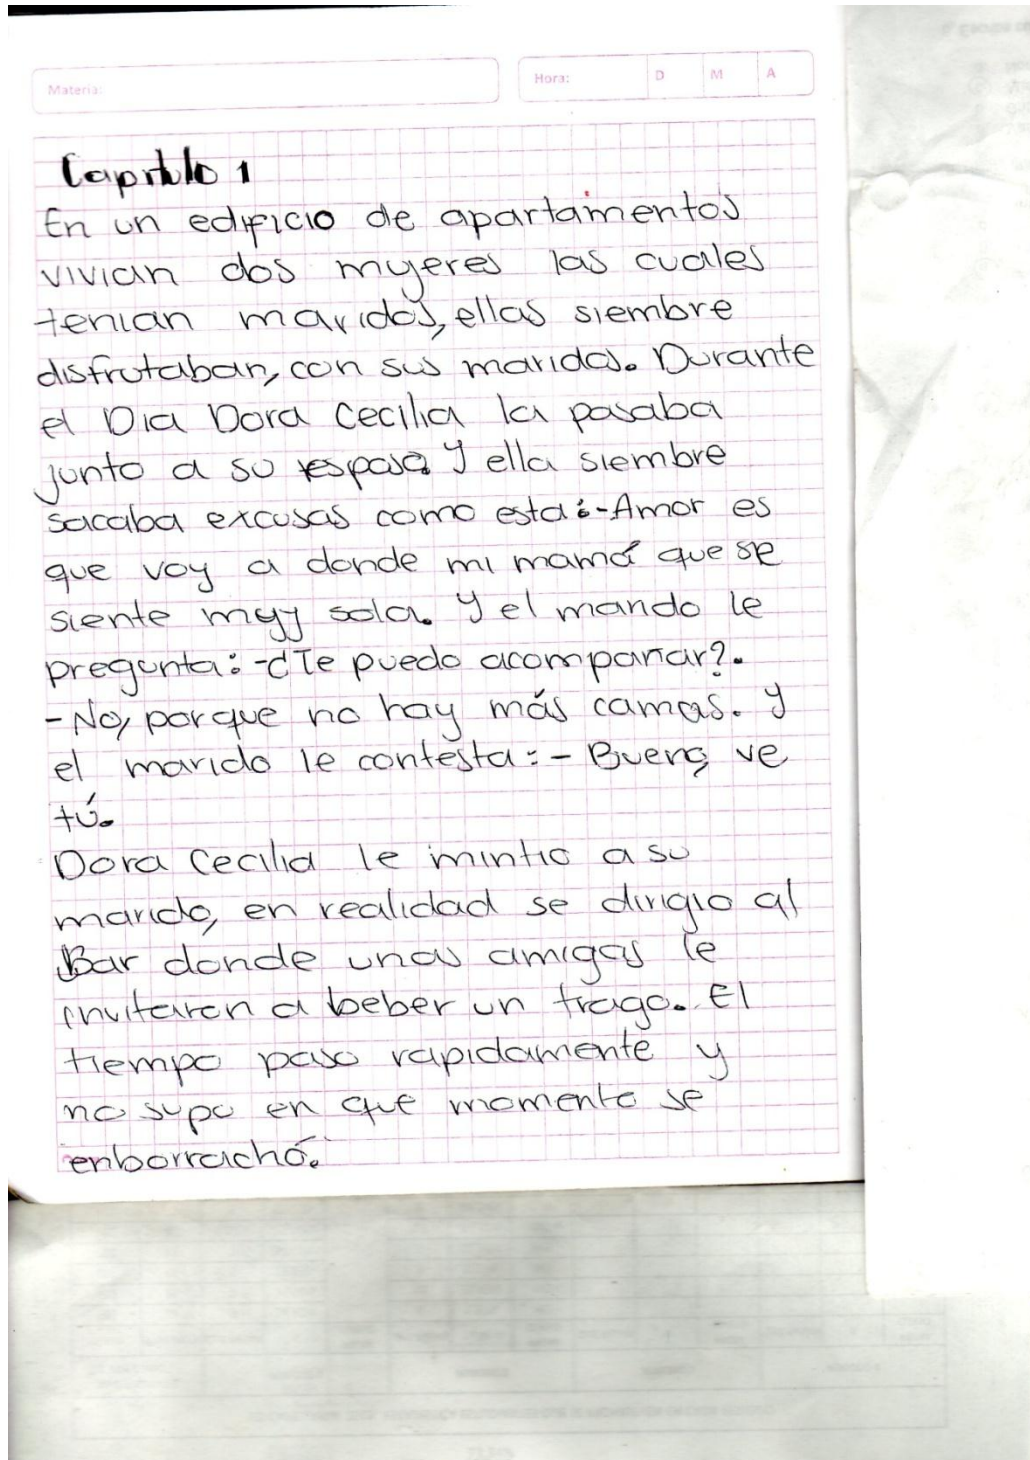 Materia:
Hora: D M A
Capitulo 1
En un edificio de apartamentos
vivian dos mujeres las cuales
tenian maridos, ellas siembre
disfrutaban, con sus maridos. Durante
el Dia Dora Cecilia la pasaba
junto a su esposo y ella siembre
sacaba excusas como esta:-Amor es
que voy a donde mi mamá que se
siente muy sola. y el marido le
pregunta: -¿Te puedo acompañar?.
-No, porque no hay más camas. y
el marido le contesta: - Bueno, ve
tú.
Dora Cecilia le mintio a su
marido, en realidad se dirigio al
Bar donde unas amigas le
invitaron a beber un trago. El
tiempo paso rapidamente y
no supo en que momento se
enborrachó.